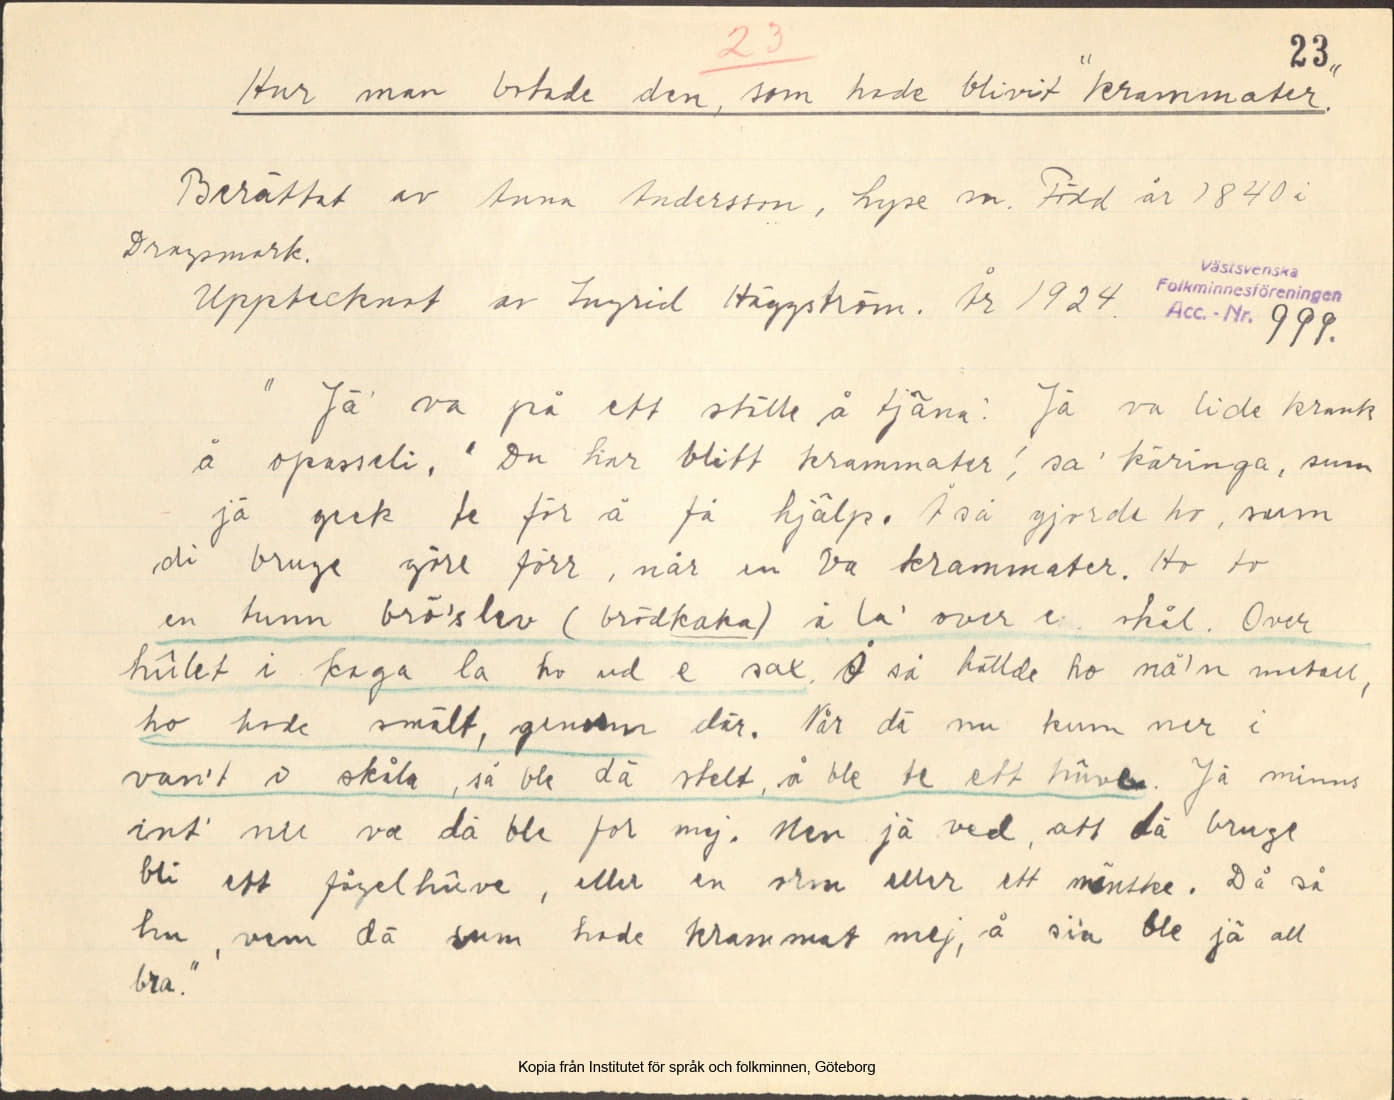 23
23
Hur man botade den, som hade blivit "krammater."
Berättat av Anna Andersson, Lyse sn. Född år 1840 i
Dragsmark.
Upptecknat av Ingrid Häggström. År 1924.
Västsvenska
Folkminnesföreningen
Acc. - Nr. 999.
" Jä' va på ett ställe å tjäna'. Jä va lide krank
å opasseli. "Du har blitt krammater", sa' käringa, sum
jä geek te för å få hjälp. Å så gjorde ho, sum
di bruge göre förr, når en va krammater. Ho to
en tunn brö'slev (brödkaka) å la' over e skål. Over
hûlet i kaga la ho ud e sax. Å så hällde ho nå'n metall,
ho hade smält, genom där. Når dä nu kum ner i
van't i skåla, så ble dä stelt, å ble te ett hûve. Jä minns
int' nu va dä ble for mej. Men jä ved, att dä bruge
bli ett fågelhûve, eller en orm eller ett mänske. Då så
hu, vem dä sum hade krammat mej, å si'a ble jä all
bra."
Kopia från Institutet för språk och folkminnen, Göteborg